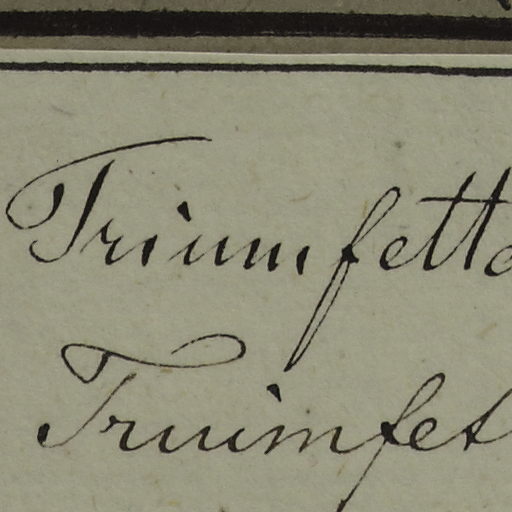 Triumfetta
Truimfet